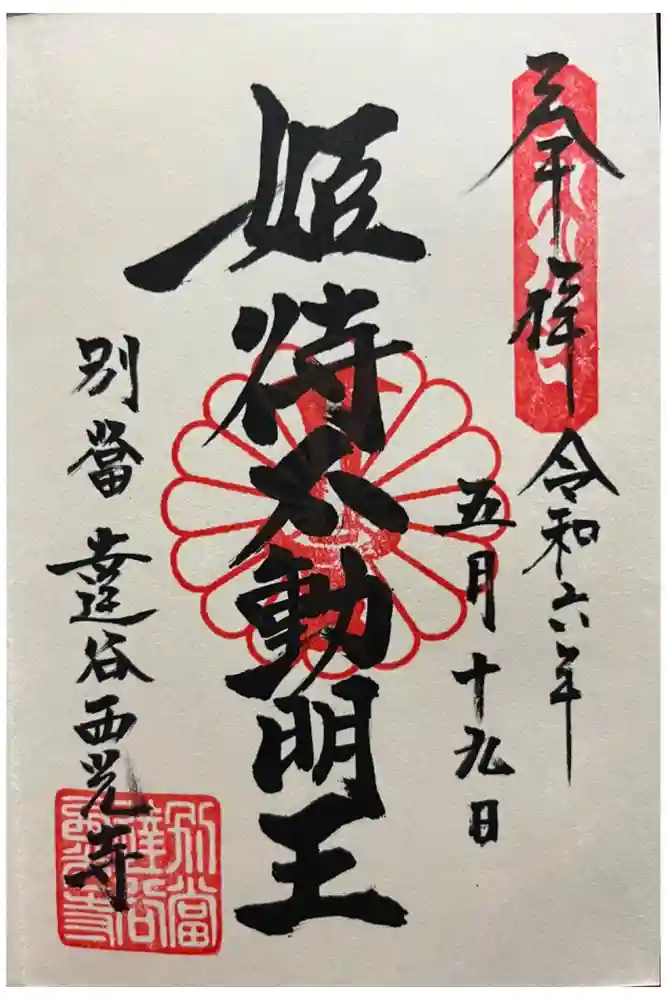 奉拝
令和六年
五月十九日
姫待不動明王
別當
達谷西光寺
別當
達谷
西光寺